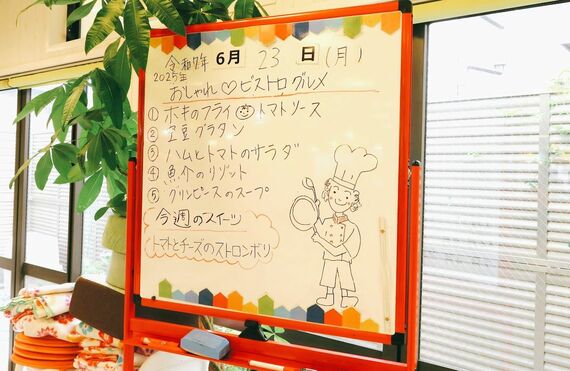 令和7年 6月 23日(月)
2025年
おしゃれ♡ビストログルメ
① ホキのフライ トマトソース
② 豆豆グラタン
③ ハムとトマトのサラダ
④ 魚介のリゾット
⑤ グリンピースのスープ
今週のスイーツ
トマトとチーズのストロンボリ